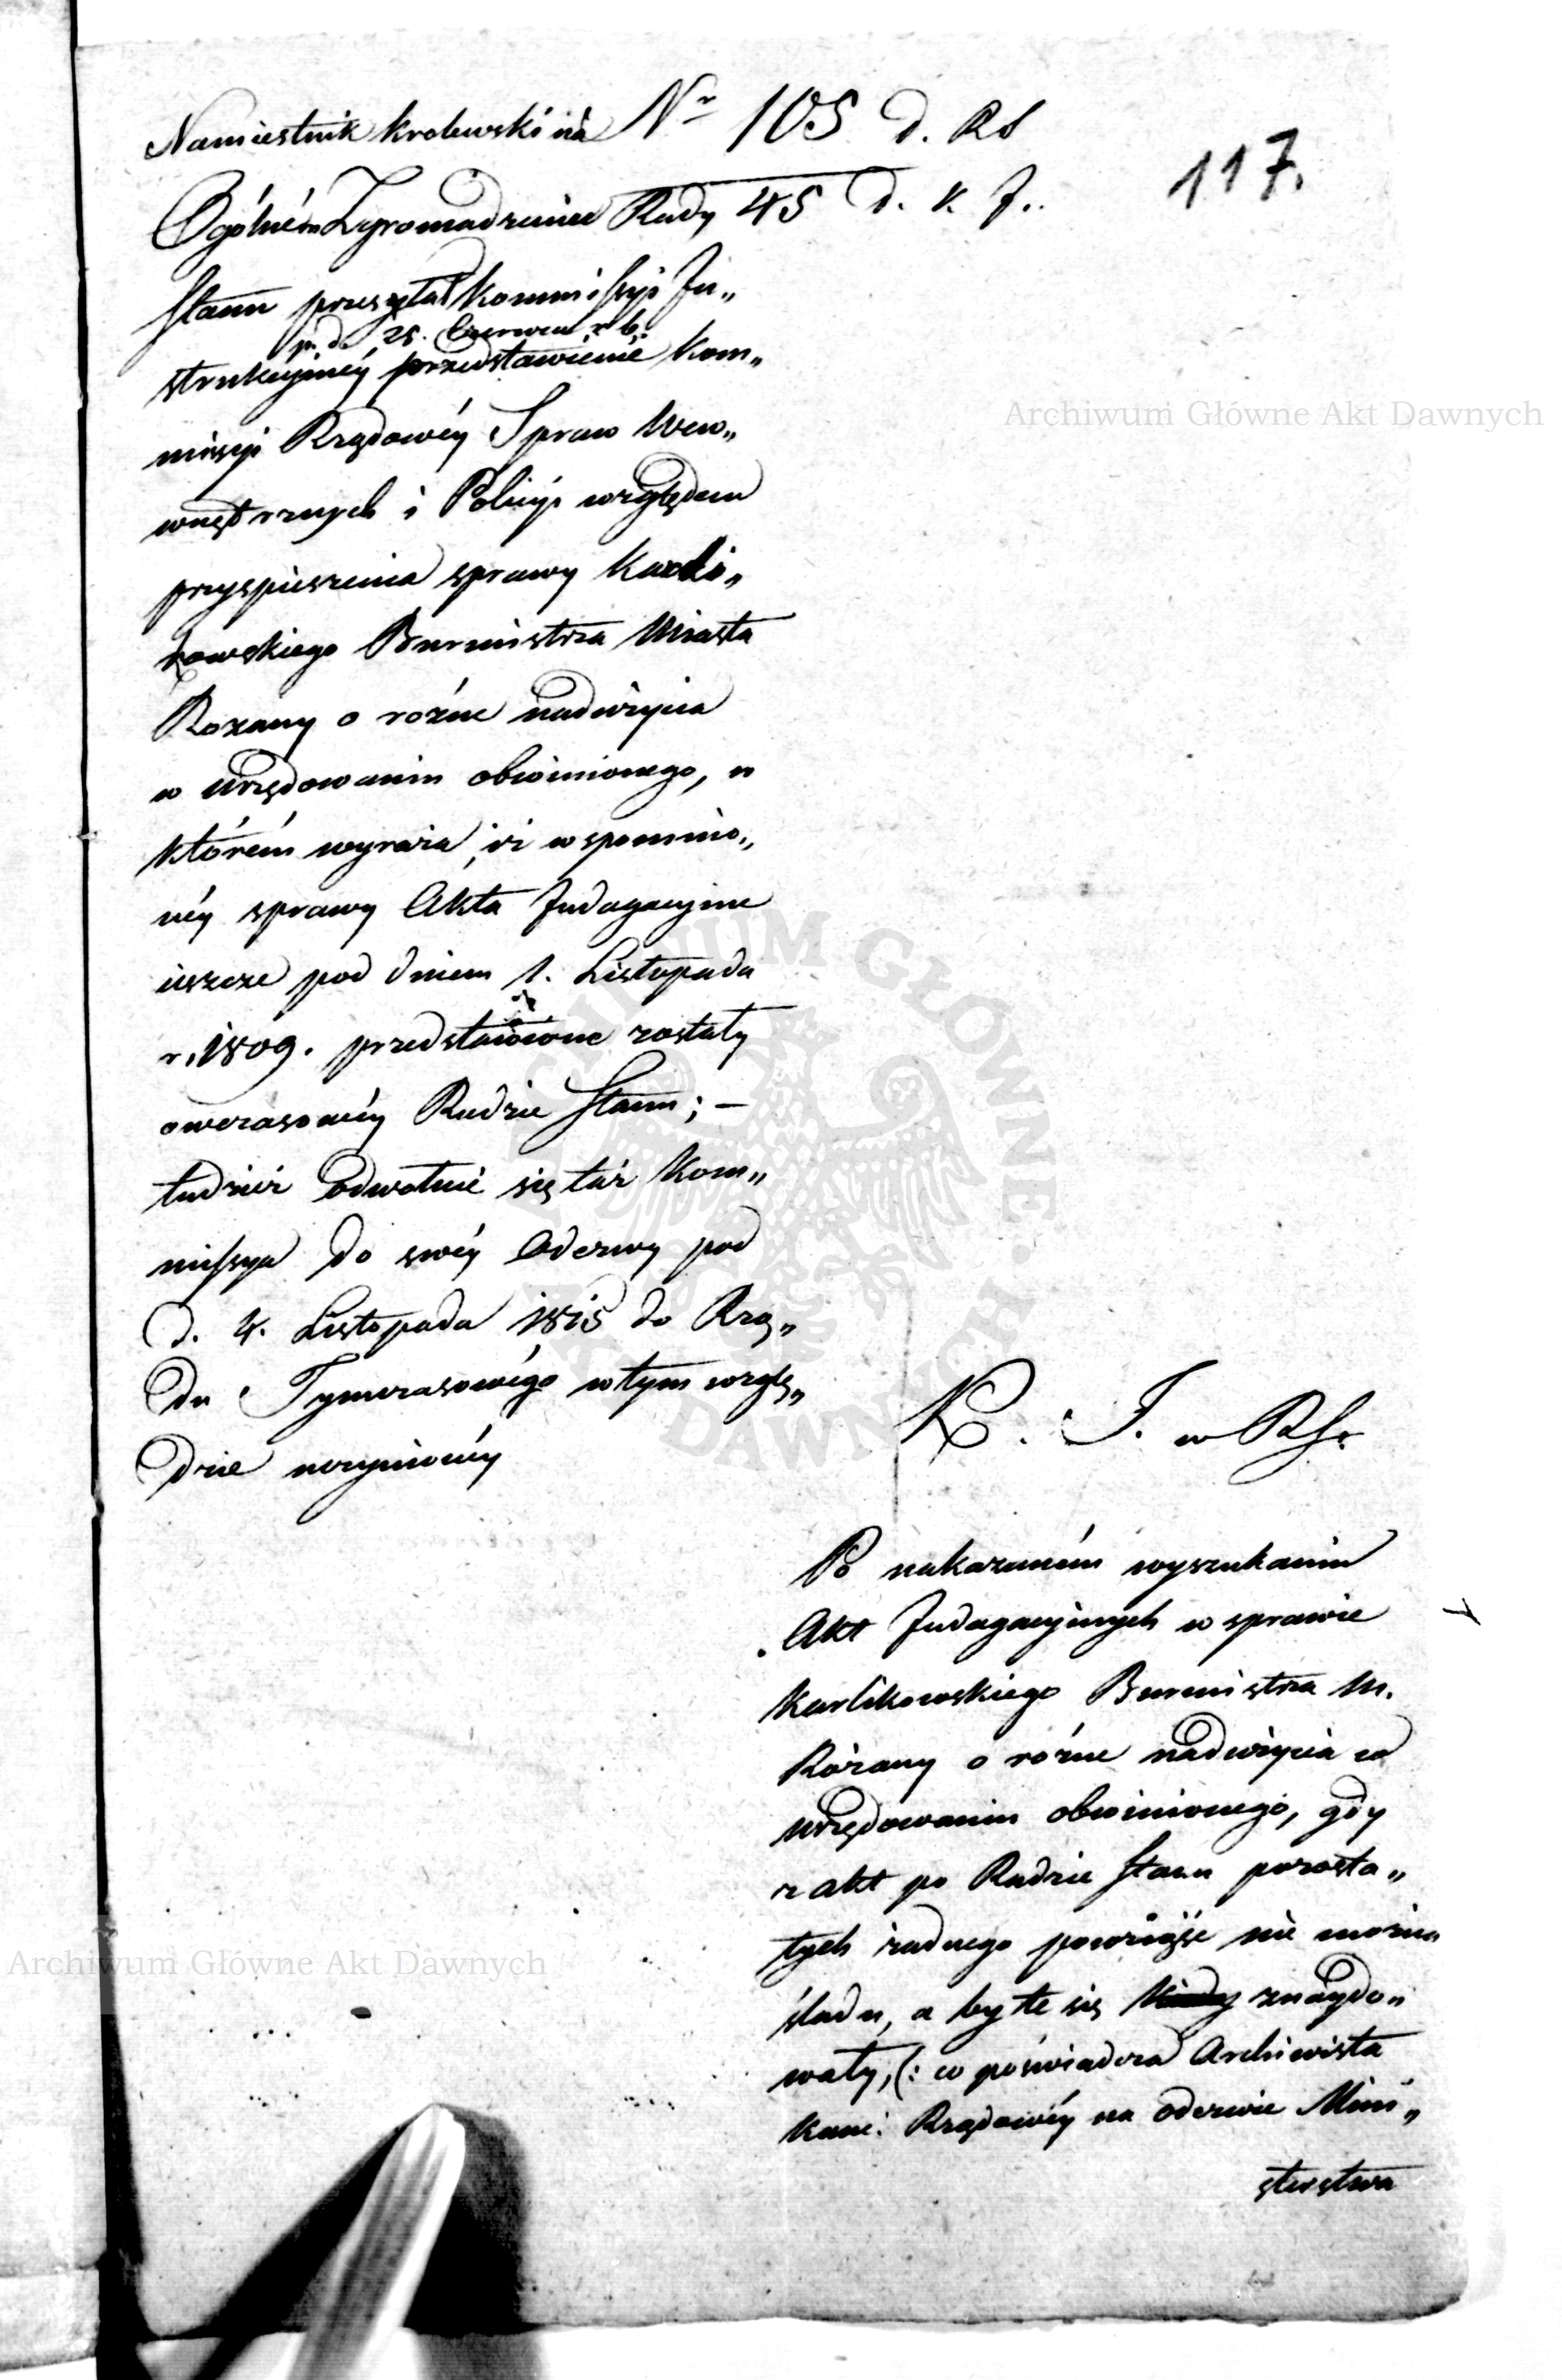 Namiestnik Krolewski na Nr 105 d. RS
117.
Ogólném Zgromadzeniu Rady 45 d. K. J.
Stanu przesyła Kommissyi In„
p. d. 25. Czerwca r. b.
strukcyjnéy przedstawienie Kom„
missyi Rządowéy Spraw Wew„
wnętrznych i Policyi względem
przyspieszenia sprawy Karli„
kowskiego Burmistrza Miasta
Rozany o rożne nadużycia
w urzędowaniu obwinionego, w
którém wyraża, iż wspomnio„
néy sprawy Akta Indagacyjne
ieszcze pod dniem 1. Listopada
r. 1809. przedstawione zostały
owczasowéy Radzie Stanu; —
tudzież odwołuie się táż Kom„
missya do swéy Odezwy pod
d. 4. Listopada 1815 do Rzą„
du Tymczasowégo w tym wzglę„
dzie uczynionéy
K. I. w RSr
Po nakazaném wyszukaniu
Akt Indagacyjnych w sprawie
Karlikowskiego Burmistrza M.
Rożany o rożne nadużycia w
urzędowaniu obwinionego, gdy
z akt po Radzie Stanu pozosta„
łych żadnego powziąść nie można
śladu, a by te się znaydo„
wały, (: co poświadcza Archiwista
Kanc: Rządowéy na odezwie Mini„
sterstwa
Archiwum Główne Akt Dawnych
Archiwum Główne Akt Dawnych
ARCHIWUM GŁÓWNE AKT DAWNYCH